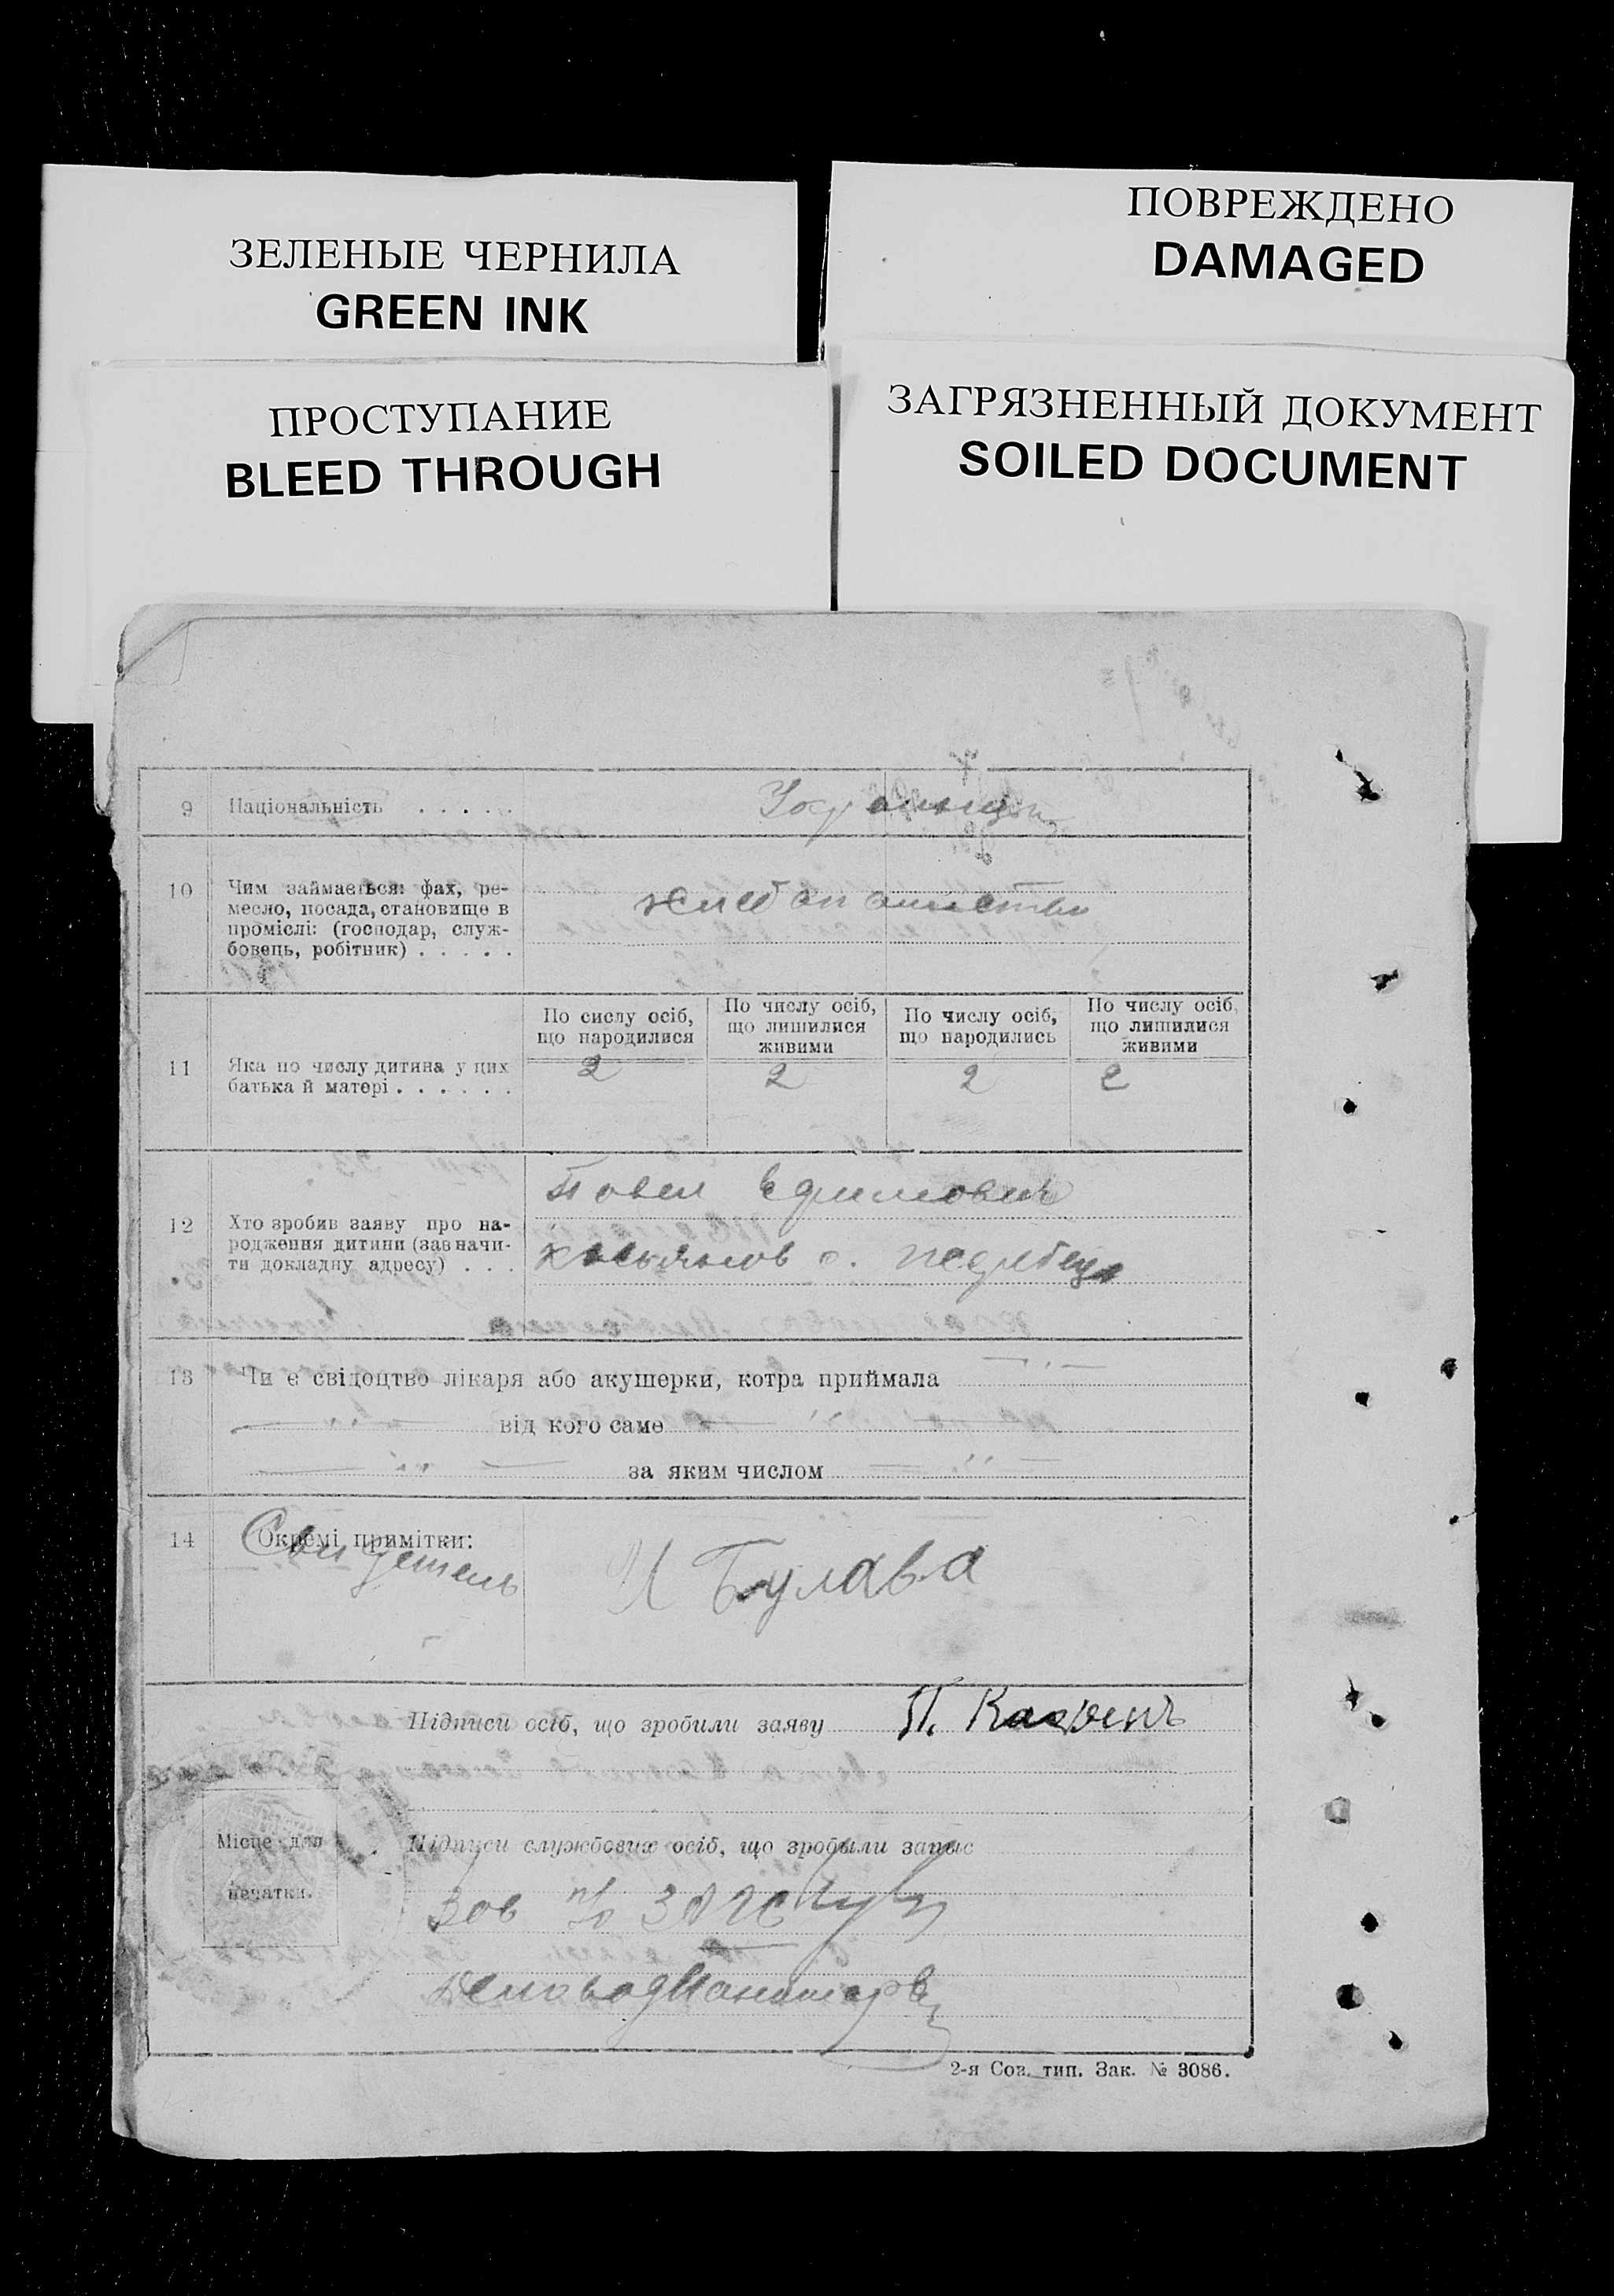 ЗЕЛЕНЫЕ ЧЕРНИЛА
GREEN INK
ПОВРЕЖДЕНО
DAMAGED
ПРОСТУПАНИЕ
BLEED THROUGH
ЗАГРЯЗНЕННЫЙ ДОКУМЕНТ
SOILED DOCUMENT
9 Національність . . . . .
10 Чим займається: фах, ре-
месло, посада, становище в
проміслі: (господар, служ-
бовець, робітник) . . . . .
По сислу осіб,
що народилися
По числу осіб,
що лишилися
живими
По числу осіб,
що народились
По числу осіб,
що лишилися
живими
11 Яка по числу дитина у цих
батька й матері . . . . . .
2 2 2 2
12 Хто зробив заяву про на-
родження дитини (зазначи-
ти докладну адресу) . . .
Павел Ефимович
с.
13 Чи є свідоцтво лікаря або акушерки, котра приймала
від кого саме
за яким числом
14 Окремі примітки:
Свидетель
И Булава
Підписи осіб, що зробили заяву П.
Місце для
печатки.
Підписи службових осіб, що зробыли запыс
Зав п/о ЗАГС
Деловод
2-я Сов. тип. Зак. № 3086.